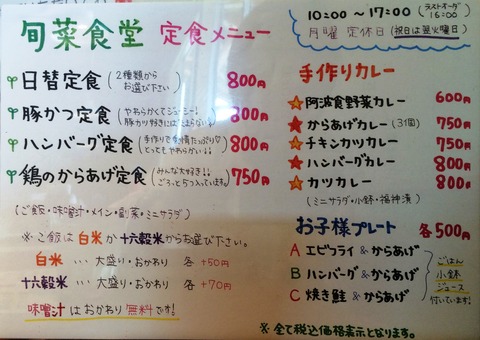 旬菜食堂 定食メニュー
日替定食 (2種類からお選び下さい) 800円
豚かつ定食 (やわらかくてジューシー! 豚カツ好きにはたまらない!) 800円
ハンバーグ定食 (手作りで愛情たっぷり♡ とってもやわらかい!!) 800円
鶏のからあげ定食 (みんな大好き!! ごろっと5つ入ってます。) 750円
(ご飯・味噌汁・メイン・副菜・ミニサラダ)
※ご飯は白米か十六穀米からお選び下さい。
白米 ・・・ 大盛り・おかわり 各 +50円
十六穀米 ・・・ 大盛り・おかわり 各 +70円
味噌汁はおかわり無料です!
10:00 〜 17:00 (ラストオーダー 16:00)
月曜 定休日 (祝日は翌火曜日)
手作りカレー
阿波食野菜カレー 600円
からあげカレー (3個) 750円
チキンカツカレー 750円
ハンバーグカレー 800円
カツカレー 800円
(ミニサラダ・小鉢・福神漬)
お子様プレート 各500円
A エビフライ & からあげ
B ハンバーグ & からあげ
C 焼き鮭 & からあげ
ごはん
小鉢
ジュース
付いています!
※全て税込価格表示となります。